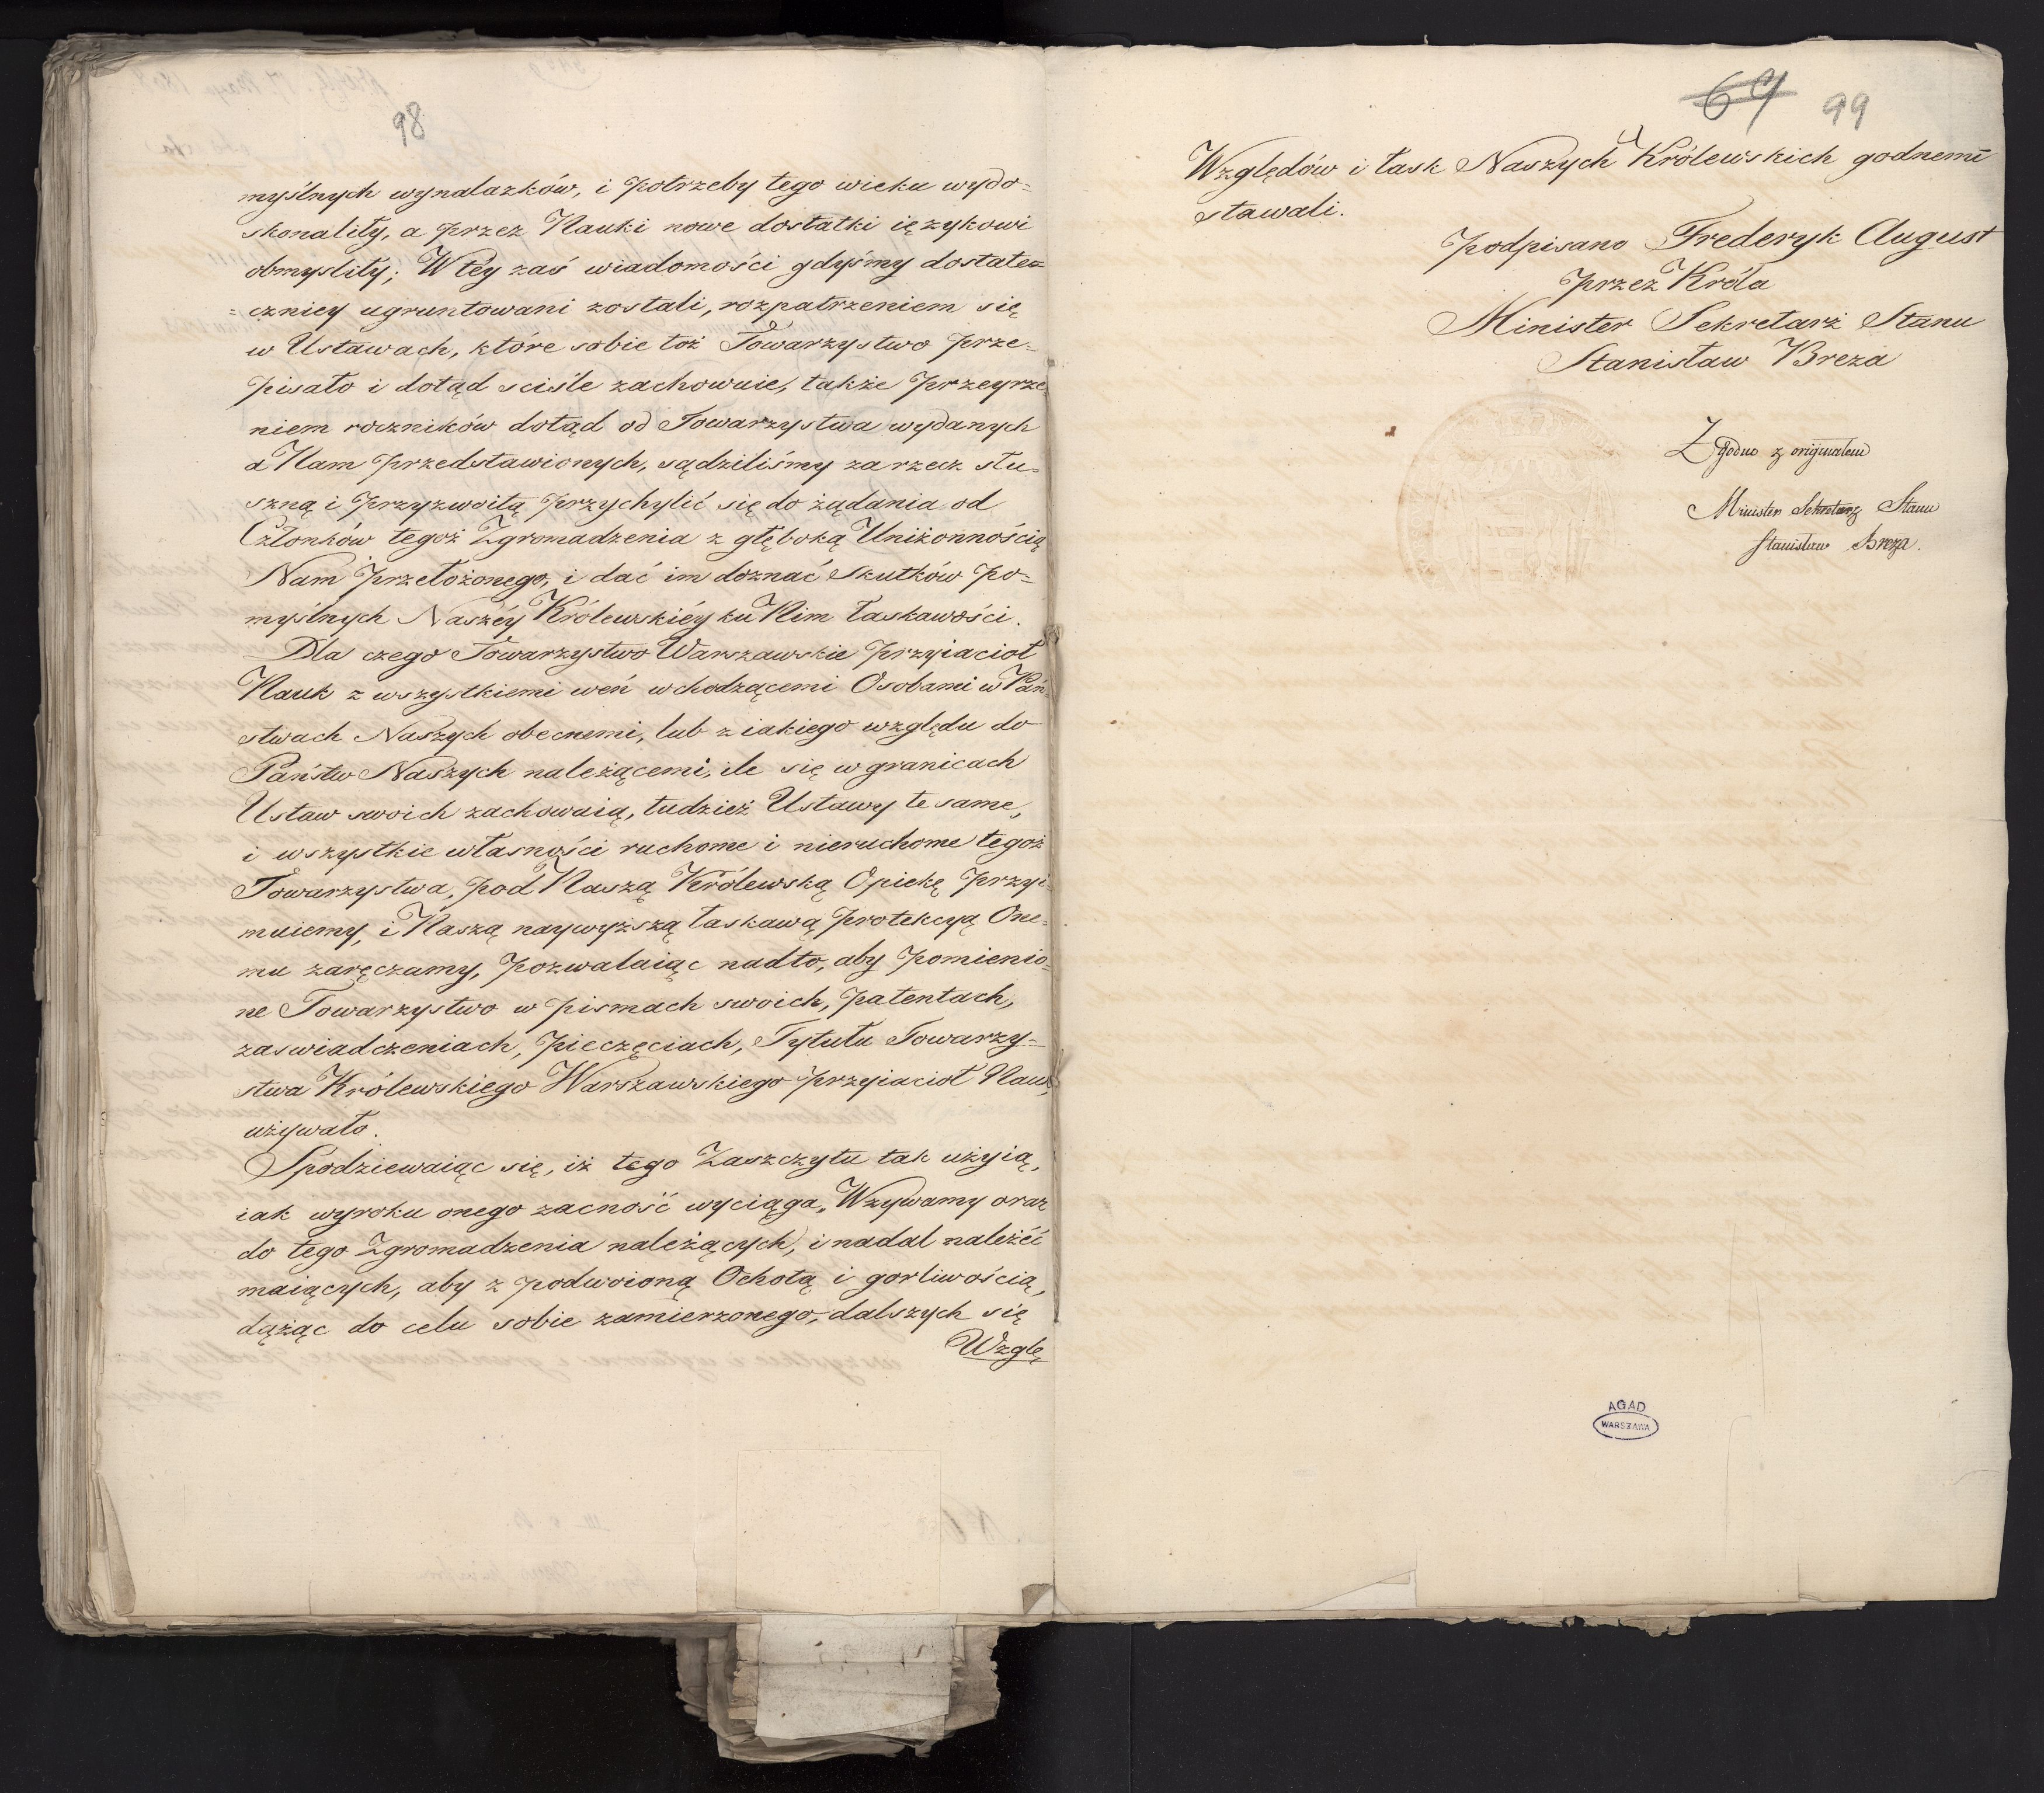 98
myślnych wynalazków, i potrzeby tego wieku wydo=
skonaliły, a przez Nauki nowe dostatki ięzykowi
obmysliły; W tey zaś wiadomości gdyśmy dostate=
=czniey ugruntowani zostali, rozpatrzeniem się
w Ustawach, które sobie toż Towarzystwo prze=
pisało i dotąd sciśle zachowuie, także przeyrze
niem roczników dotąd od Towarzystwa wydanych
a Nam przedstawionych, sądziliśmy za rzecz słu=
szną i przyzwoitą przychylić się do żądania od
Członków tegoż Zgromadzenia z głęboką Uniżonnością
Nam przełożonego, i dać im doznać skutków po=
myślnych Naszéy Królewskiéy ku Nim łaskawości.
Dla czego Towarzystwo Warszawskie Przyiacioł
Nauk z wszystkiemi weń wchodzącemi Osobami w Pań=
stwach Naszych obecnemi, lub z iakiego względu do
Państw Naszych należącemi, ile się w granicach
Ustaw swoich zachowaią, tudzież Ustawy te same,
i wszystkie własności ruchome i nieruchome tegoż
Towarzystwa, pod Naszą Królewską Opiekę przyi=
muiemy, i Naszą naywyższą łaskawą protekcyą One=
mu zaręczamy, pozwalaiąc nadto, aby pomienio=
ne Towarzystwo w pismach swoich, patentach,
zaswiadczeniach, pieczęciach, Tytułu Towarzy=
stwa Królewskiego Warszawskiego Przyiacioł Nauk,
używało.
Spodziewaiąc się, iż tego Zaszczytu tak użyią,
iak wyroku onego zacność wyciąga, Wzywamy oraz
do tego Zgromadzenia należących, i nadal należéć
maiących, aby z podwoioną Ochotą i gorliwością,
dążąc do celu sobie zamierzonego, dalszych się
Wzglę
69 99
Względów i łask Naszych Królewskich godnemi
stawali.
podpisano Frederyk August
przez Króla
Minister Sekretarz Stanu
Stanisław Breza
Zgodno z originałem
Minister Sekretarz Stanu
Stanisław Breza.
AGAD
WARSZAWA